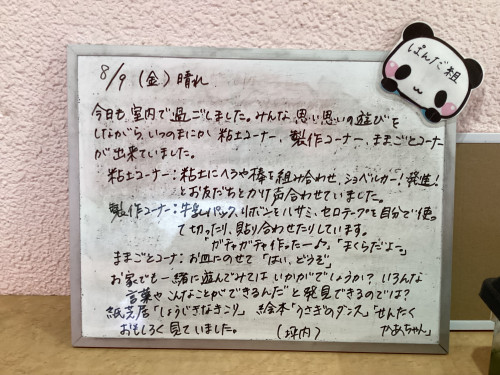 ぱんだ組
8/9 (金) 晴れ
今日も室内で過ごしました。みんな思い思いの遊びを
しながら、いつのまにか 粘土コーナー、製作コーナー、ままごとコーナー
が出来ていました。
粘土コーナー：粘土にヘラや棒を組み合わせ、ショベルカー!発進!
とお友だちとかけ声合わせていました。
製作コーナー：牛乳パック、リボンをハサミ、セロテープを自分で使っ
て切ったり、貼り合わせたりしています。
"ガチャガチャ作ったー♪"、「まくらだよー」
ままごとコーナー：お皿にのせて「はい、どうぞ」
お家でも一緒に遊んでみては いかがでしょうか? いろんな
言葉やこんなことができるんだと発見できるのでは?
紙芝居「しょうじきなきこり」 絵本「うさぎのダンス」「せんたく
かあちゃん」
おもしろく見ていました。 (坪内)